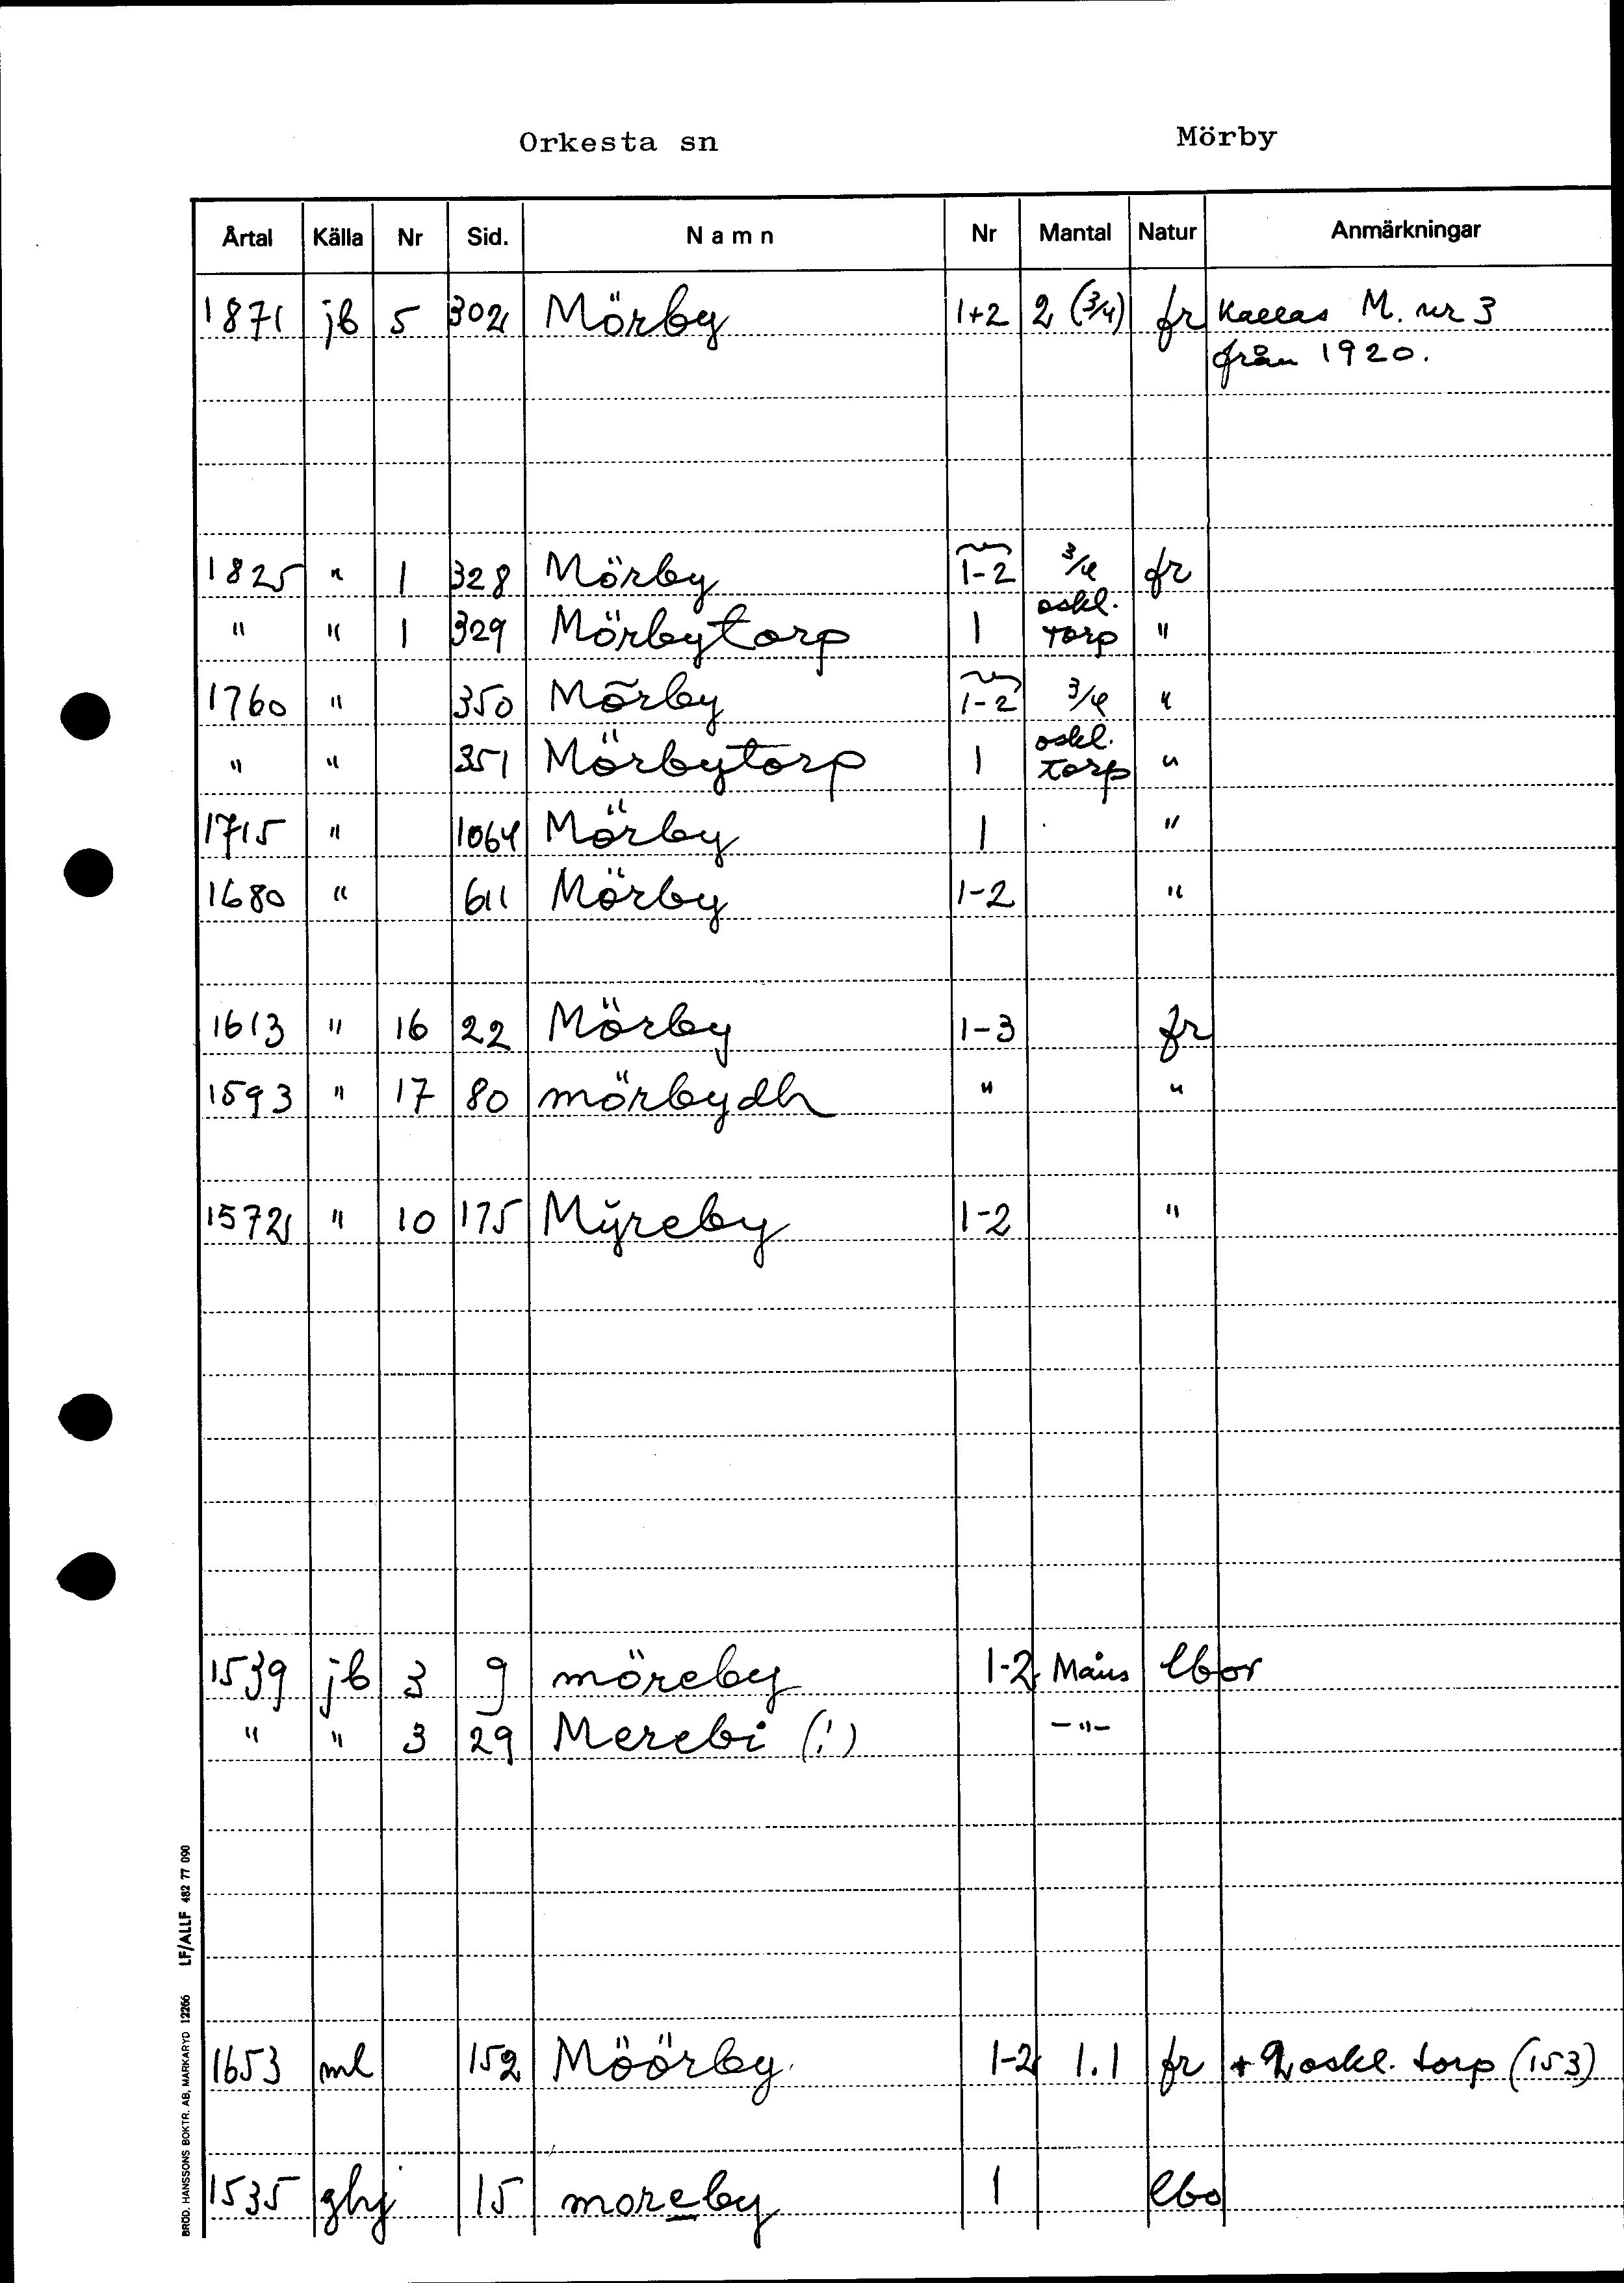 Orkesta sn Mörby
Årtal Källa Nr Sid. Namn Nr Mantal Natur Anmärkningar
1871 jb 5 302 Mörby 1+2 2 (3/4) fr Kallas M. nr 3
från 1920.
1825 " 1 328 Mörby 1-2 3/4 fr
" " 1 329 Mörbytorp 1 oskl. torp "
1760 " 350 Mörby 1-2 3/4 "
" " 351 Mörbytorp 1 oskl. torp "
1715 " 1064 Mörby 1 "
1680 " 611 Mörby 1-2 "
1613 " 16 22 Mörby 1-3 fr
1593 " 17 80 mörbydh " "
1572 " 10 175 Mÿreby 1-2 "
1539 jb 3 9 möreby 1-2 Måns lbor
" " 3 29 Merebi (!) -"-
1653 ml 152 Möörby 1-2 1.1 fr + 2 oskl. torp (153)
1535 ghj 15 moreby 1 lbo
BRÖD. HANSSONS BOKTR. AB, MARKARYD 12266 LF/ALLF 482 77 090